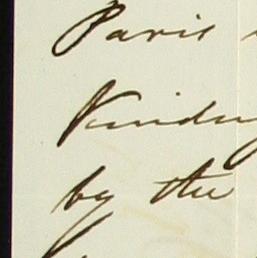 Paris
Kindly
by the